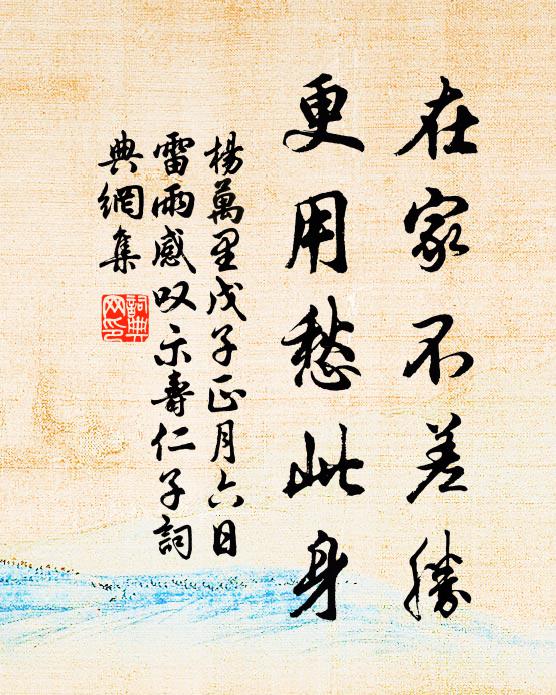 在家不差勝
更用愁此身
楊萬里戊子正月六日
雷雨感叹示壽仁子詞
典網集
詞典
网印